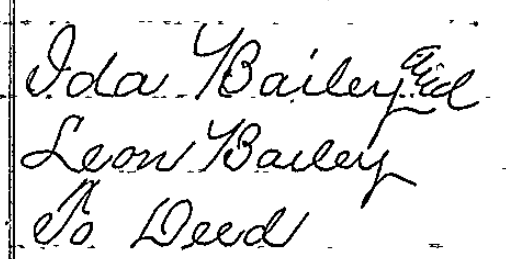 Ida Bailey
Leon Bailey
To Deed